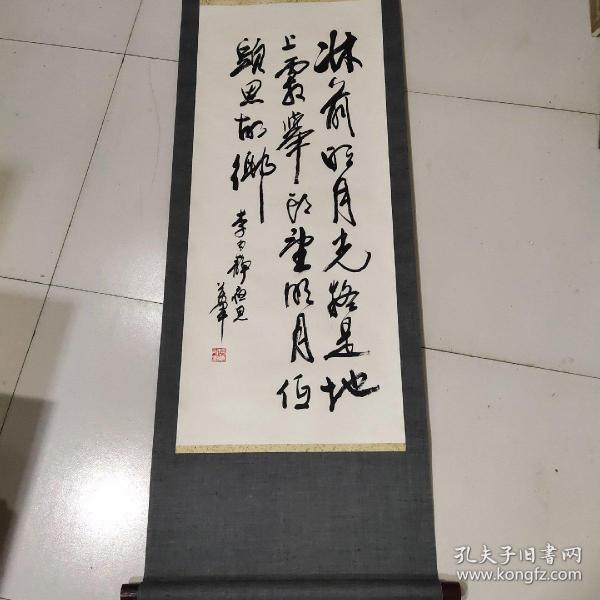 床前明月光疑是地
上霜举头望明月低
頭思故鄉
李白静夜思
孔夫子旧书网
www.kongfz.com